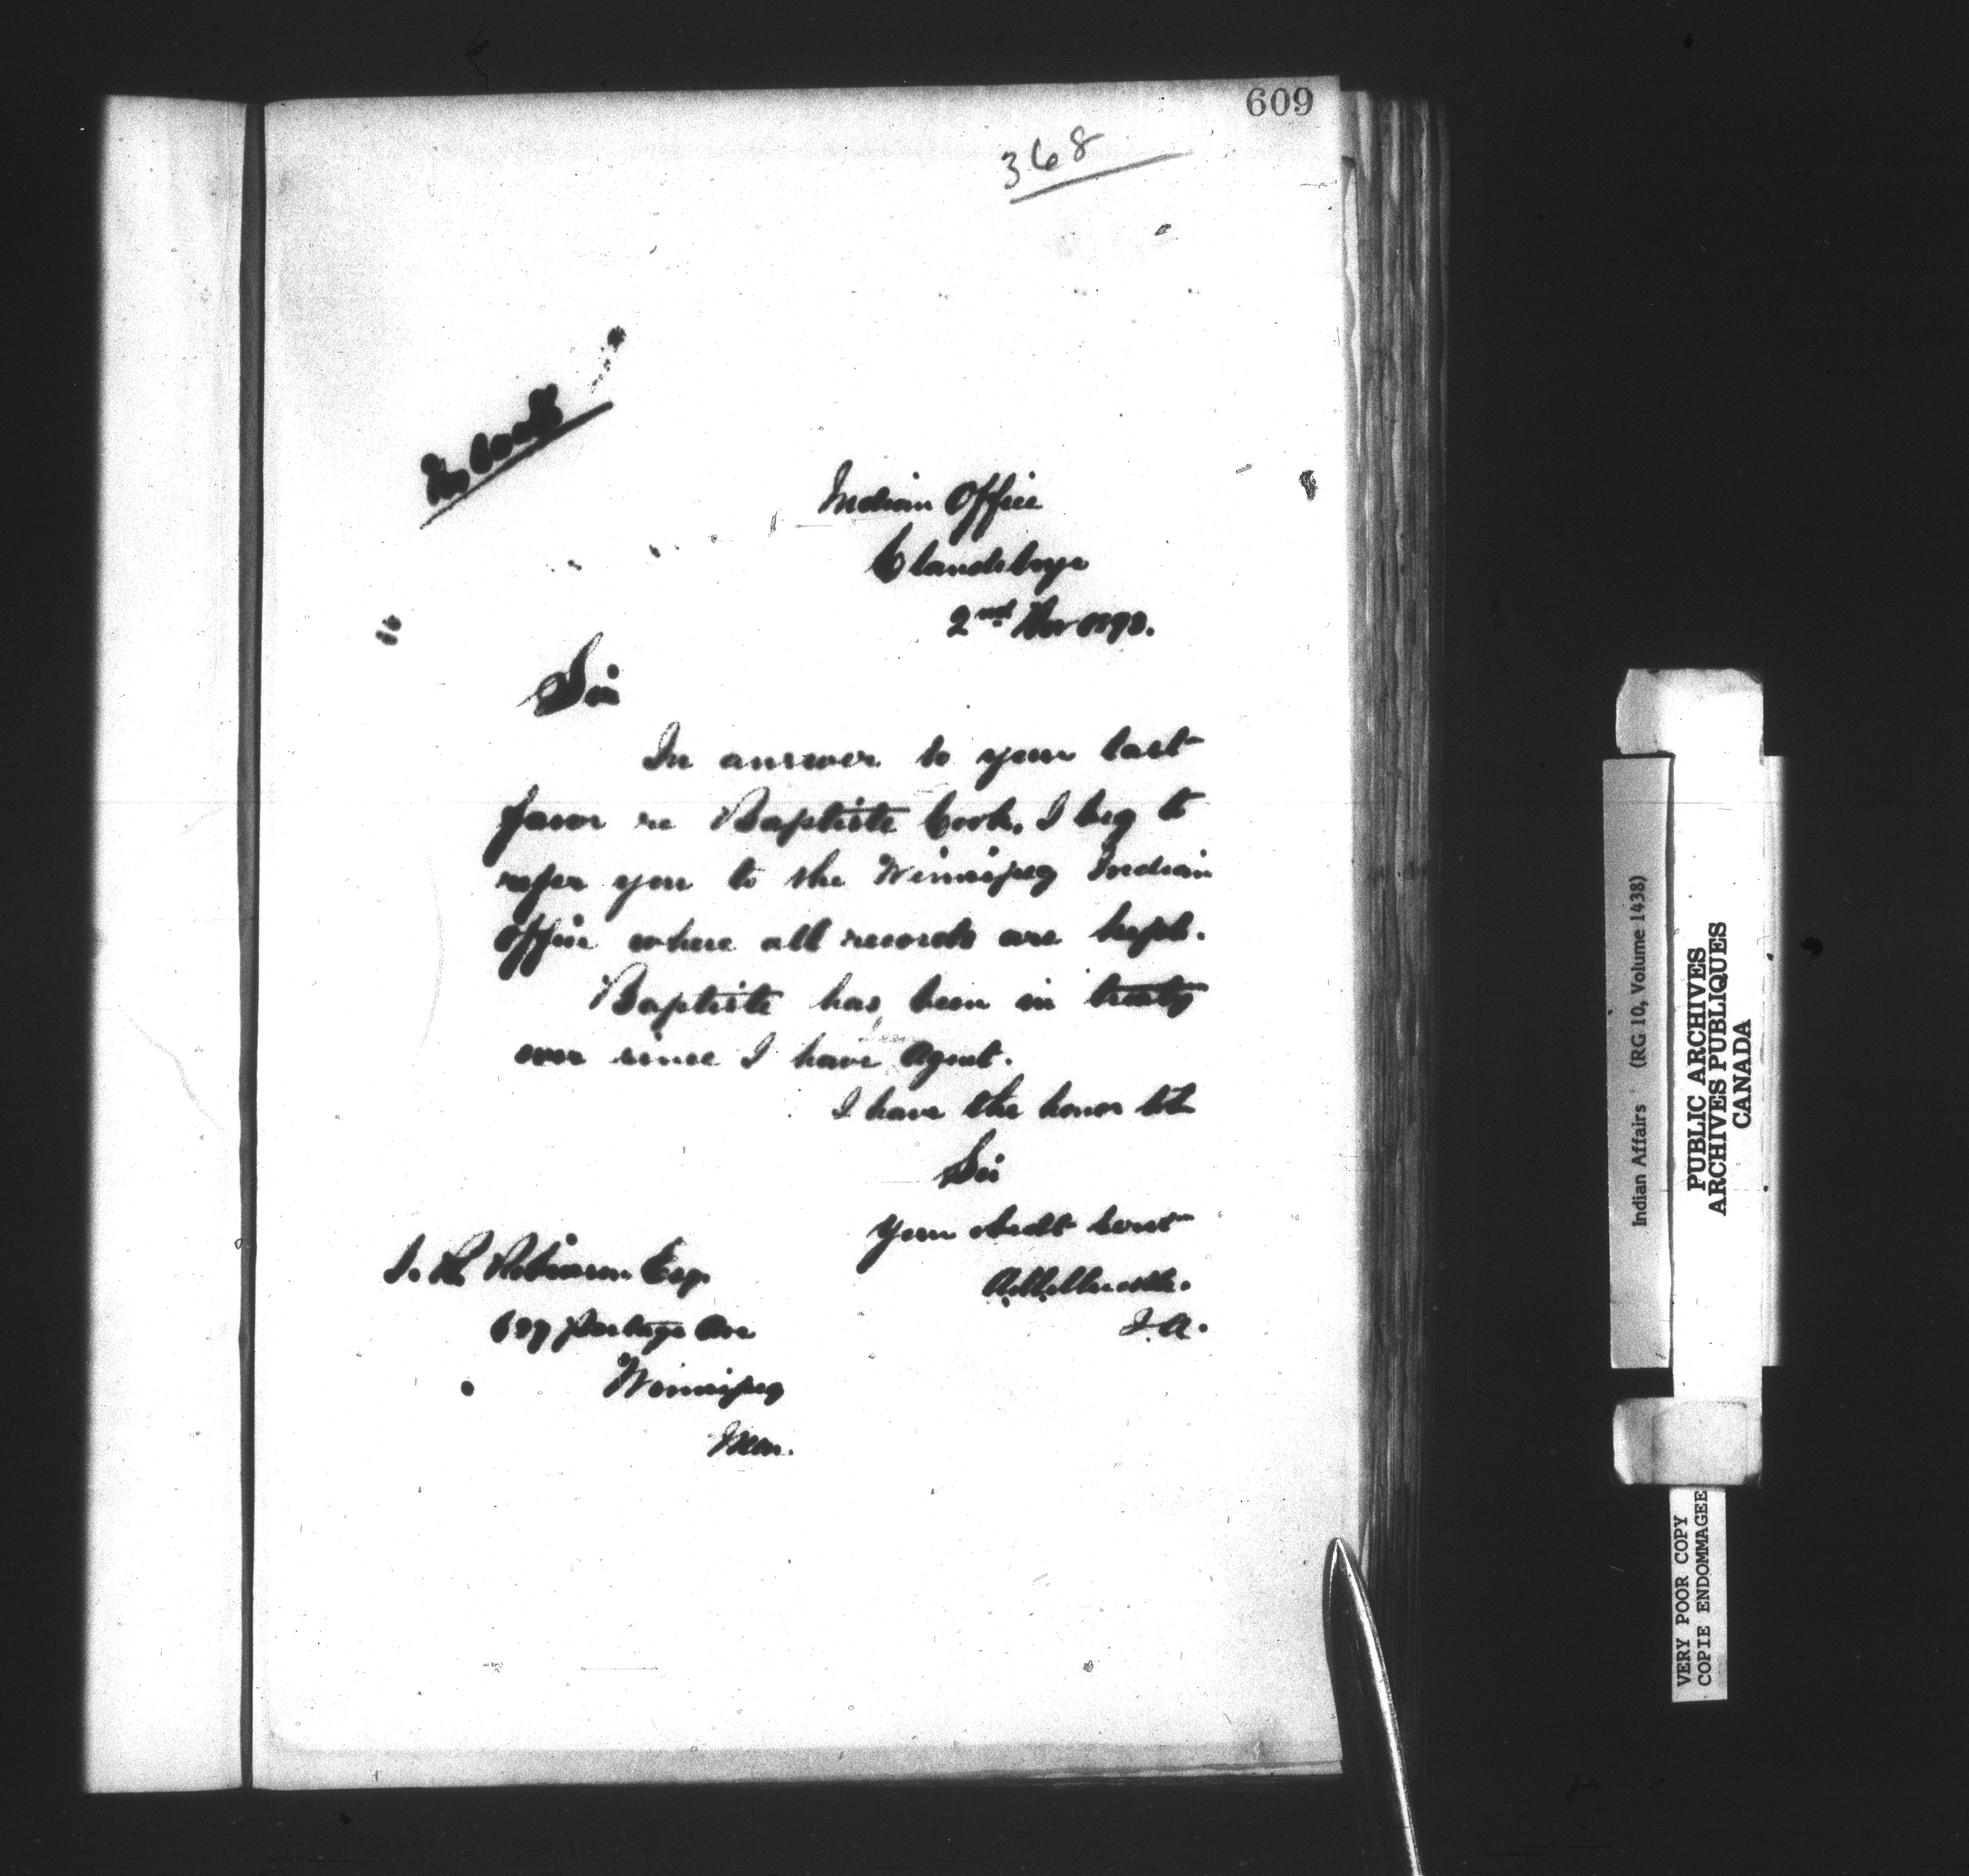 609
368
Indian Office
Clandeboye
2nd Nov 1893.
Sir
In answer to your last
favor re Baptiste Cook, I beg to
refer you to the Winnipeg Indian
Office where all records are kept.
Baptiste has been in treaty
ever since I have Agent.
I have the honor to be
Sir
Your obedt Servt
I.A.
Robinson Esq.
Portage Ave
Winnipeg
Man.
Indian Affairs (RG 10, Volume 1438)
PUBLIC ARCHIVES
ARCHIVES PUBLIQUES
CANADA
VERY POOR COPY
COPIE ENDOMMAGEE